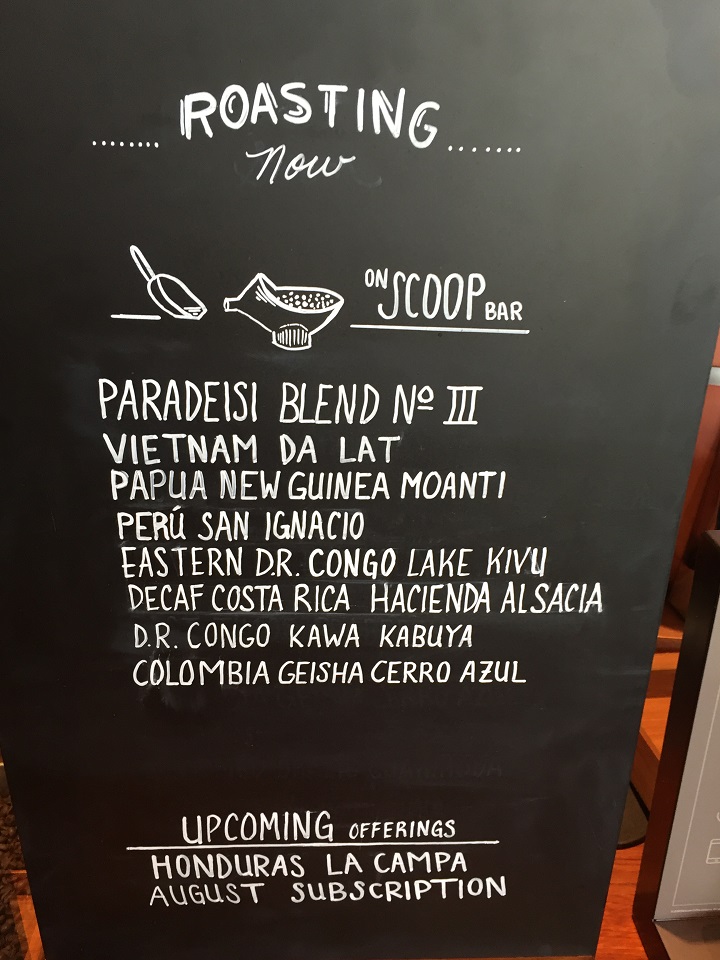 ROASTING
Now
ON SCOOP BAR
PARADEISI BLEND Nº III
VIETNAM DA LAT
PAPUA NEW GUINEA MOANTI
PERÚ SAN IGNACIO
EASTERN D.R. CONGO LAKE KIVU
DECAF COSTA RICA HACIENDA ALSACIA
D.R. CONGO KAWA KABUYA
COLOMBIA GEISHA CERRO AZUL
UPCOMING OFFERINGS
HONDURAS LA CAMPA
AUGUST SUBSCRIPTION